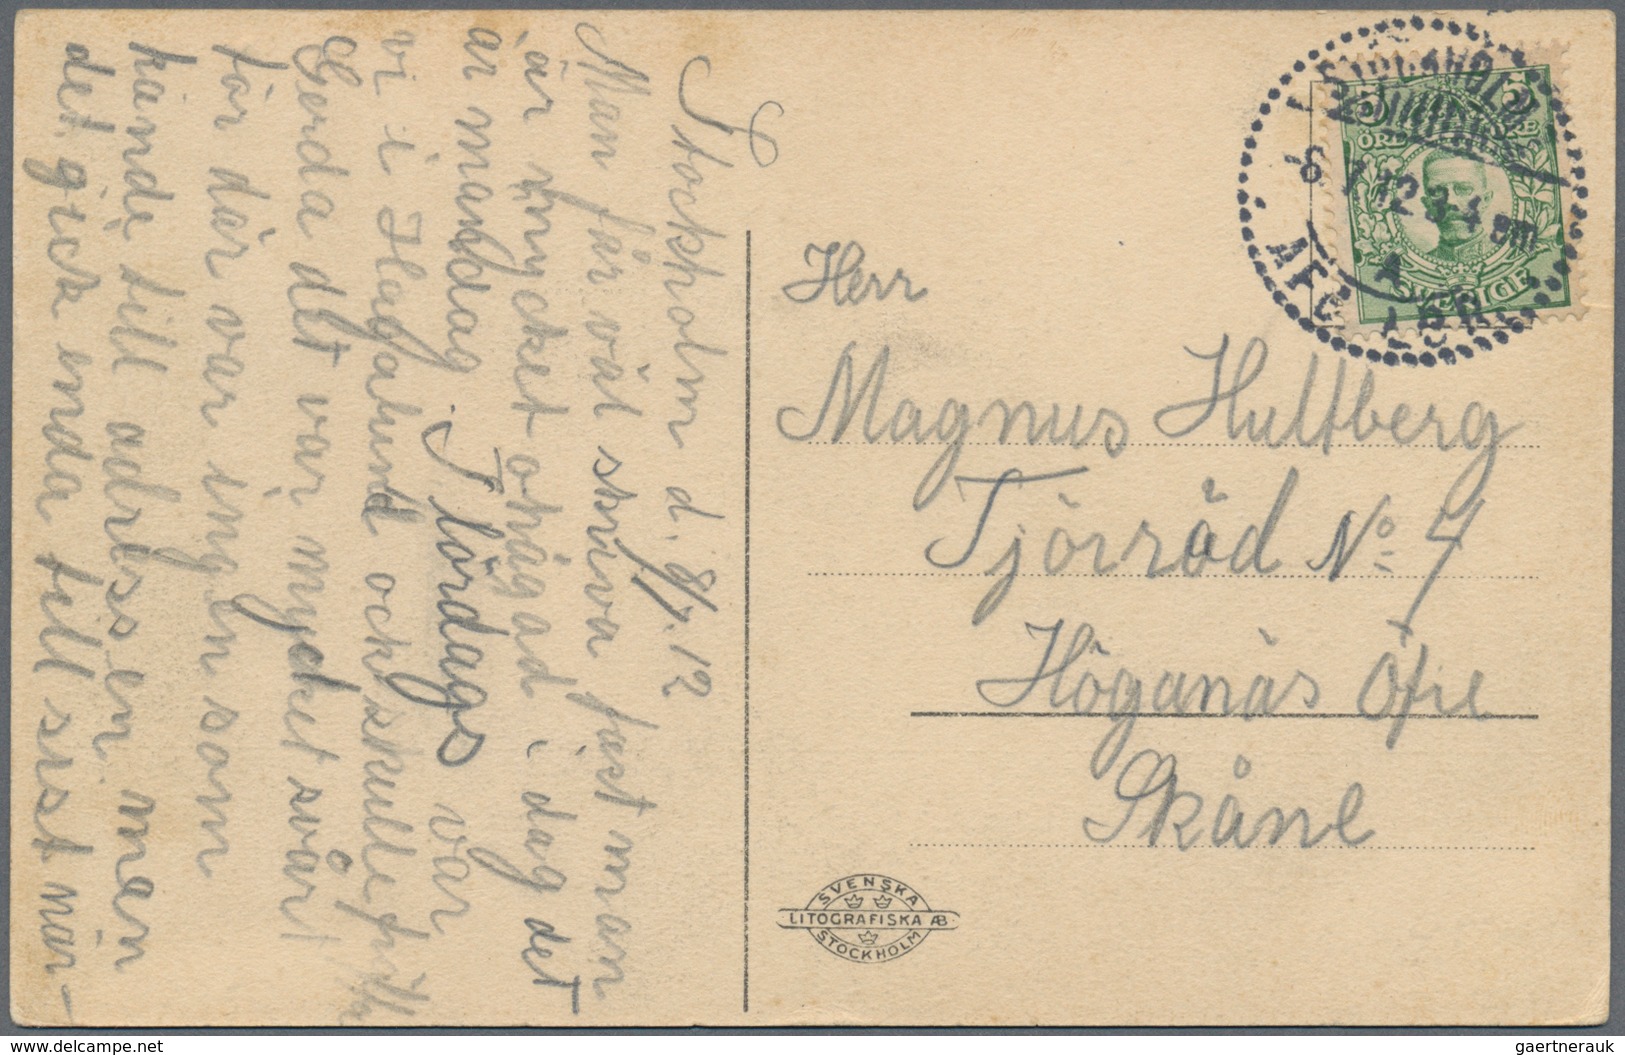 Stockholm d. 8/7.12
Man får väl skriva fast man
är mycket o det
är måndag. I lördags var
vi i Hagalund ock skulle till
Gerda det var mycket svårt
för där var ingen som
kände till adressen men
det gick enda till sist när-
Herr
Magnus Hultberg
Tjörröd No 4
Höganäs Öfre
Skåne
5 5
ÖRE ÖRE
SVERIGE
STOCKHOLM
8 7 12 3-4 em
A
AFG.
SVENSKA
LITOGRAFISKA AB
STOCKHOLM
delcampe.net
gaertnerauk